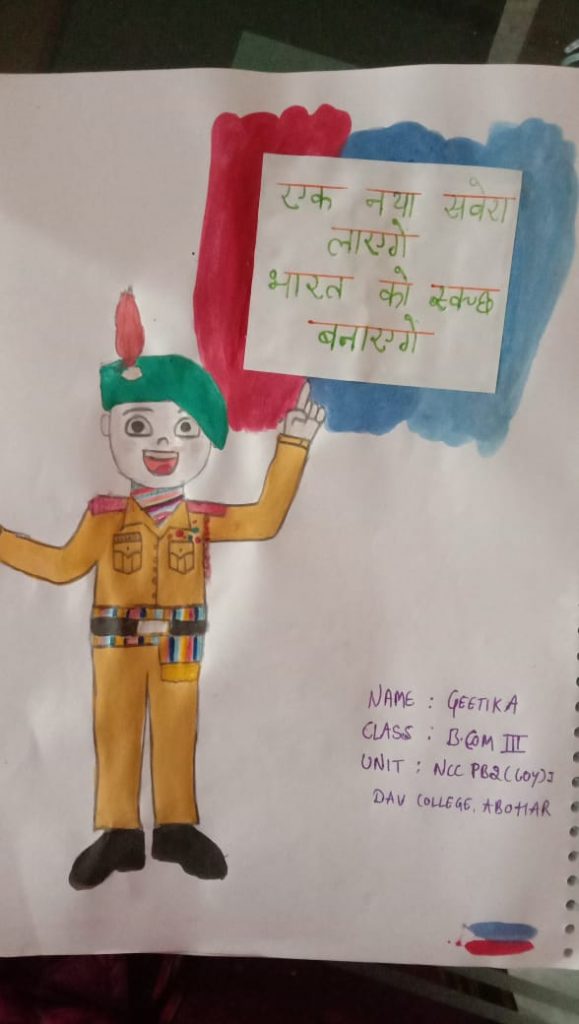 एक नया सवेरा
लाएगें
भारत को स्वच्छ
बनाएगें
NAME : GEETIKA
CLASS : B.COM III
UNIT : NCC PB2(COY)I
DAV COLLEGE, ABOHAR